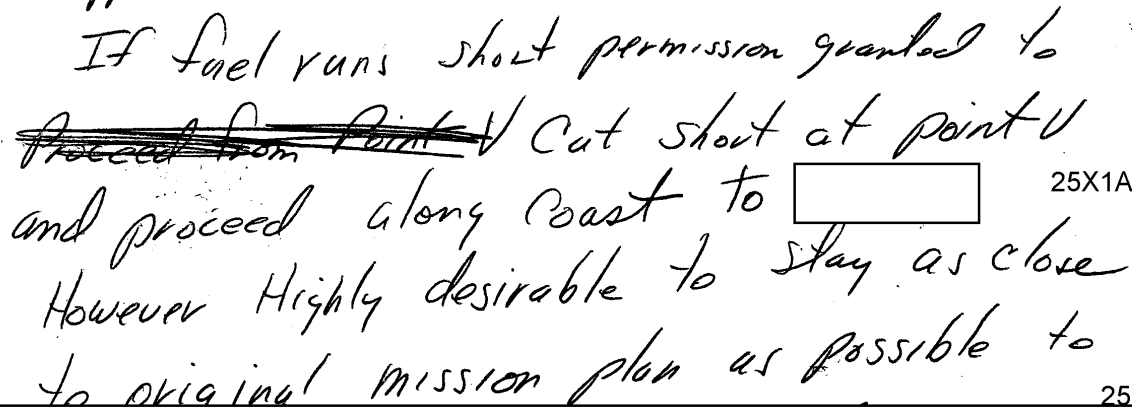 If fuel runs short permission granted to
Proceed from Point V Cut short at point V
and proceed along Coast to
25X1A
However Highly desirable to stay as close
to original mission plan as possible to
25